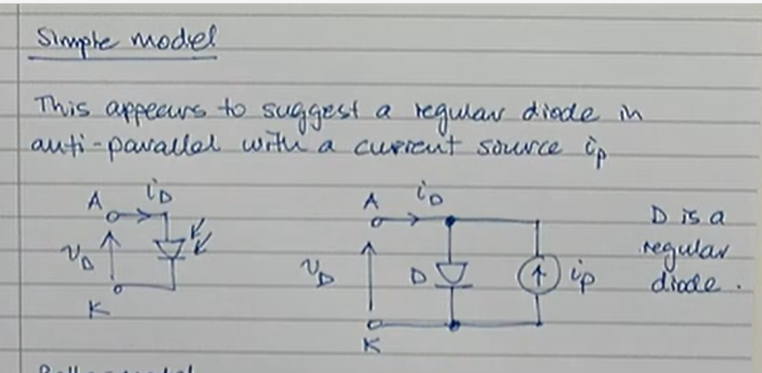 Simple model
This appears to suggest a regular diode in
anti-parallel with a current source ip
A iD
vD
K
A iD
vD D ip
K
D is a
regular
diode.